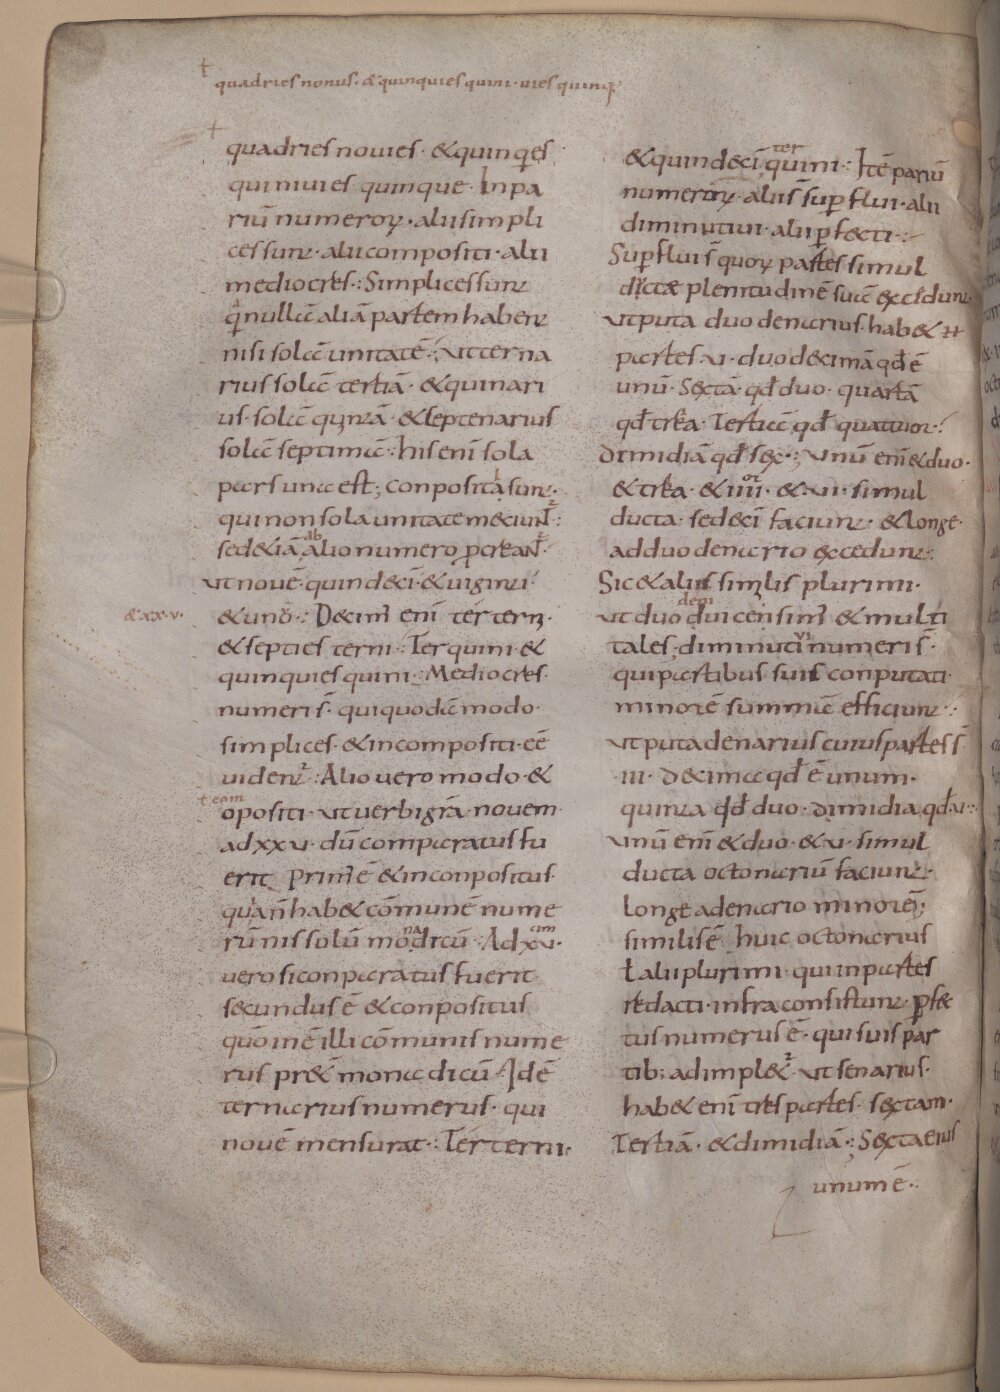 quadries nonus· &quinquies quini· uies quinq;
quadries nouies· &quinq;es
quiniuies quinque· In pa
riū numeroꝝ· alii simpli
ces sunt· alii compositi· alii
mediocres·: Simplices sunt
qͥ nullā aliā partem habent
nisi solā unitatē·; ut terna
rius solā tertiā· &quinari
us· solā qͥntā· &septenarius
solā septimā·: his enī sola
pars una est; conposita sunt·
qui non sola unitate meciunt̃:
sed&iā ab alio numero ꝓcreant̃·
ut nouē· quindecī· &uiginti·
&xx·v·
&uno·: Decim̄ enī ter tern̄·
&septies terni·: Ter quini·&
quinquies quini·: Mediocres·
numeri s̄· qui quodā modo·
simplices· &incompositi· eē
uident̃·: Alio uero modo·&
ł com
opositi· ut uerbi gr̄a· novem·
ad xxv· dū comparatus fu
erit prim̄ ē &inconpositus·
quia n̄ hab& cōmunē nume
rū nisi solū monadicū·: Ad xv cim·
vero si conparatus fuerit
secundus ē &conpositus
quō inē illi cōmunis nume
rus pr&̄ monadicū· Idē
ternarius numerus· qui
nouē mensurat·: Ter terni·
&quindecī ter quini·: Itē pariū
numeroꝝ· alii s̄ suꝑflui· alii
diminutiui· alii ꝑfecti·:
Suꝑflui s̄ quoꝝ partes simul
dictæ plenitudinē suā excedunt
ut puta duodenarius· hab& n̄
partes· vi· duodecimā qd̄ ē
unū· Sextā· qd̄ duo· quartā
qd̄ tria· Tertiā qd̄ quatuor·:
dimidiā qd̄ sex·; unū enī &duo·
&tria· &iiiiᵒʳ· &·vi· simul
ducta· sedecī faciunt· &longe·
ad duodenario excedunt·:
Sic & alii similis plurimi·
ut duo deui duicensim̄ &multi
tales; diminutiui numeri s̄·
qui partibus suis conputati·
minorē summā efficiunt·:
ut puta denarius cuius partes s̄
·iii· decima qd̄ ē unum·
quinta qd̄ duo· dimidia qd̄·v·:
unū enī &duo· &·v· simul
ducta octonariū faciunt·
longe a denario minorē;
similis ē huic octonarius
ł alii plurimi· qui in partes
redacti· infra consistunt· ꝑfec
tus numerus ē· qui suis par
tib; adimplet̃· ut senarius·
hab& enī tres partes· sextam·
Tertiā· &dimidiā·; Sexta eius
unum ē·: